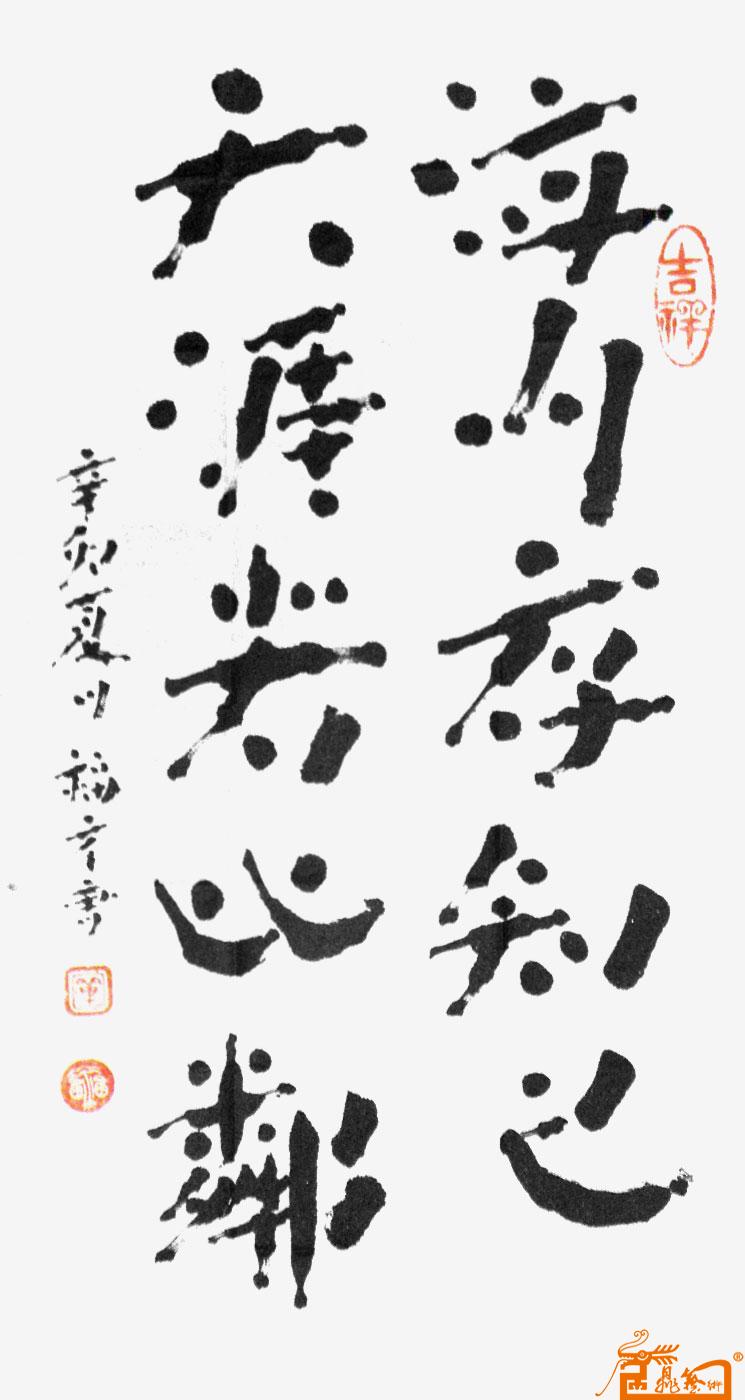 吉祥
海内存知己
天涯若比鄰
辛卯夏 福 書